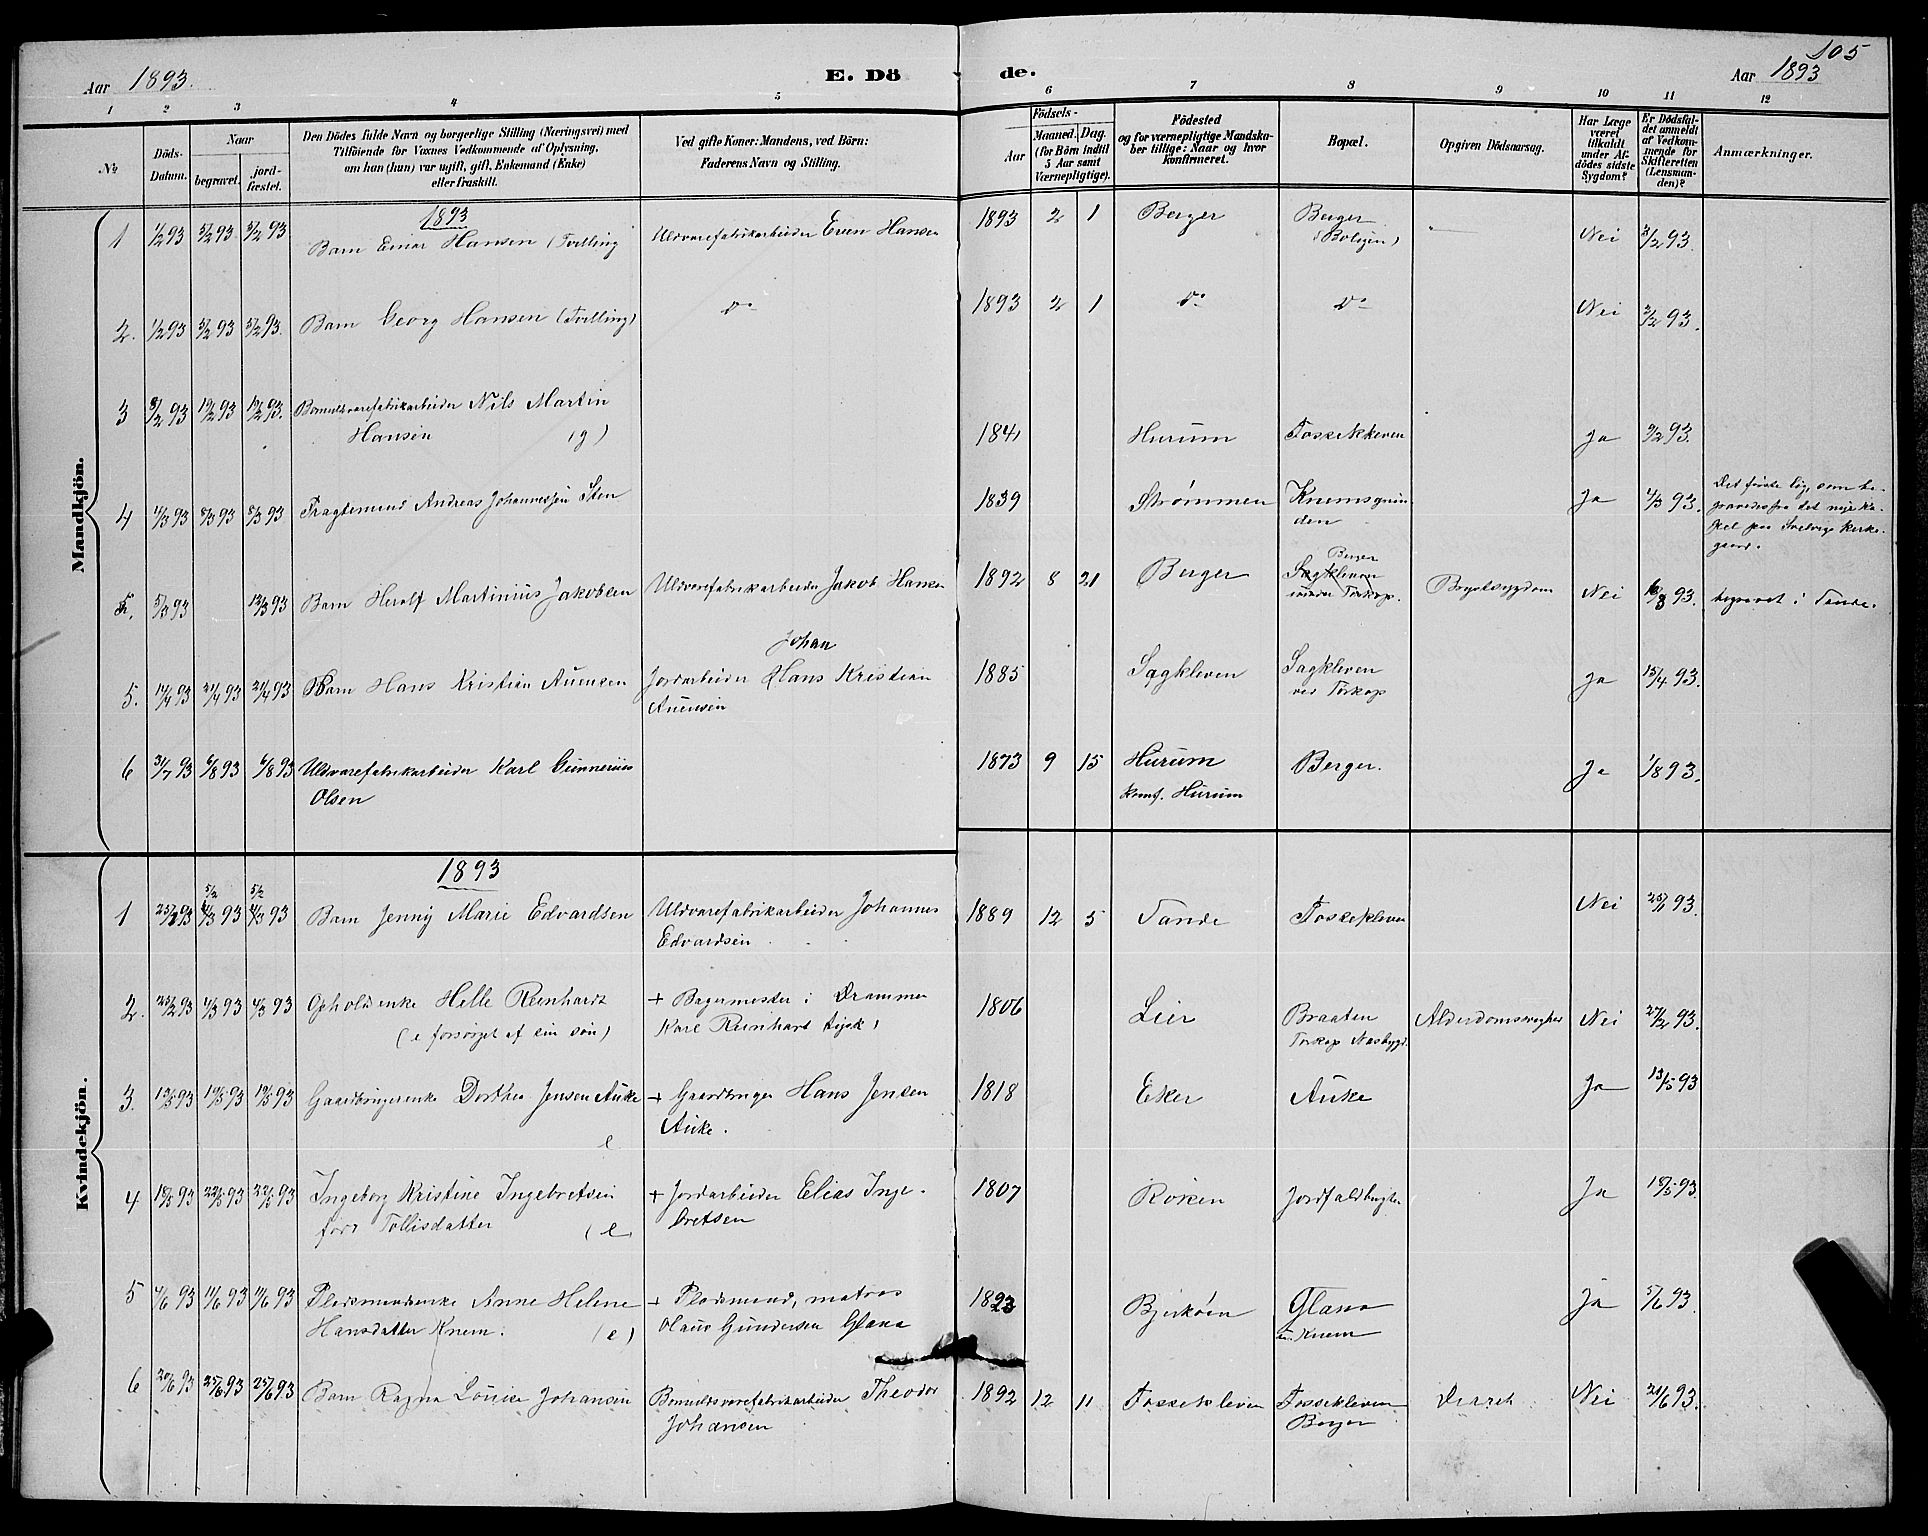 105
Aar 1893.
E. Dö
de.
Aar 1893
1 2 3 4 5 6 7 8 9 10 11 12
No
Döds-Datum.
Naar
begravet.
jordfæstet.
Den Dödes fulde Navn og borgerlige Stilling (Næringsvei) med
Tilföiende for Voxnes Vedkommende af Oplysning,
om han (hun) var ugift, gift, Enkemand (Enke)
eller fraskilt.
Ved gifte Koner: Mandens, ved Börn:
Faderens Navn og Stilling.
Födsels-
Aar
Maaned. Dag.
(for Börn indtil
5 Aar samt
Værnepligtige).
Födested
og for værnepligtige Mandska-
ber tillige: Naar og hvor
konfirmeret.
Bopæl.
Opgiven Dödsaarsag.
Har Læge
været
tilkaldt
under Af-
dödes sidste
Sygdom?
Er Dödsfal-
det anmeldt
af Vedkom-
mende for
Skifteretten
(Lensman-
den)?
Anmærkninger.
Mandkjön.
1893
1 1/2 93 5/2 93 5/2 93 Barn Einar Hansen (Tvilling Uldvarefabrikarbeider Even Hansen 1893 2 1 Berger Berger Nei 3/2 93.
(Boligen)
2. 1/2 93 5/2 93 5/2 93. Barn Georg Hansen (Tvilling) do 1893 2 1 do do Nei 3/2 93.
3 8/2 93 19/2 93 19/2 93. Bomuldsvarefabrikarbeider Nils Martin
Hansen (g) 1841 Hurum Fossekleven Ja 9/2 93.
4 4/3 93 8/3 93 8/3 93 Fragtemand Andreas Johannessen Sten 1839 Strømmen Knemsgrun-
den Ja 4/3 93. Det første lig, som be-
gravedes fra det nye Ka-
pel paa Svelvigs kirke-
gaard.
5/3 93 12/3 93 Barn Herolf Martinius Jakobsen Uldvarefabrikarbeider Jakob Hansen 1892 8 21 Berger Berger
Sagkleven
under Torkop. Brystsygdom Nei 93. begravet i Sande.
Johan
5. 14/4 93 21/4 93 21/4 93 Barn Hans Kristian Auensen Jordarbeider Hans Kristian
Auensen 1885 Sagkleven Sagkleven
ved Torkop Ja 15/4 93.
6 31/7 93 6/8 93 6/8 93 Uldvarefabrikarbeider Karl Gunnerius
Olsen 1873 9 15 Hurum
konf. Hurum Berger. Ja 1/8 93.
Kvindekjön.
1893
5/2 5/2
1 93 4/3 93 4/3 93 Barn Jenny Marie Edvardsen Uldvarefabrikarbeider Johannes
Edvardsen 1889 12 5 Sande Fossekleven Nei 93.
2. 25/2 93 4/3 93 4/3 93 Opholdsenke Helle Reinhardt
(e forsørget af sin søn) + Bagermester i Drammen
Karl Reinhard 1806 Lier Braaten
Torkop Nesbygd. Alderdomssvaghed Nei 27/2 93.
3. 12/5 93 19/5 93 19/5 93 Gaardbrugerenke Dorthea Jensen Auke
e + Gaardbruger Hans Jensen
Auke. 1818 Eker Auke Ja 13/5 93
4 18/5 93 22/5 93 22/5 93 Ingeborg Kristine Ingebretsen
født Tollisdatter (e) + Jordarbeider Elias Inge-
bretsen 1807 Røken Ja 18/5 93.
5 4/6 93 11/6 93 11/6 93 Pladsmandsenke Anne Helene
Hansdatter Knem. (e) + Pladsmand, matros
Olaus Gundersen Glana 1823 Bjerkøen Glana
u. Knem Ja 5/6 93.
6 20/6 93 25/6 93 25/6 93 Barn Ragna Louise Johansen Bomuldsvarefabrikarbeider Theodor
Johansen 1892 12 11 Fossekleven Fossekleven
Berger Nei 21/6 93.